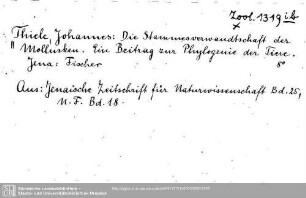 Zool. 1319 ib
Thiele, Johannes: Die Stammesverwandtschaft der
Mollusken. Ein Beitrag zur Phylogenie der Tiere.
Jena: Fischer 8°
Aus: Jenaische Zeitschrift für Naturwissenschaft Bd. 25,
N. F. Bd. 18.